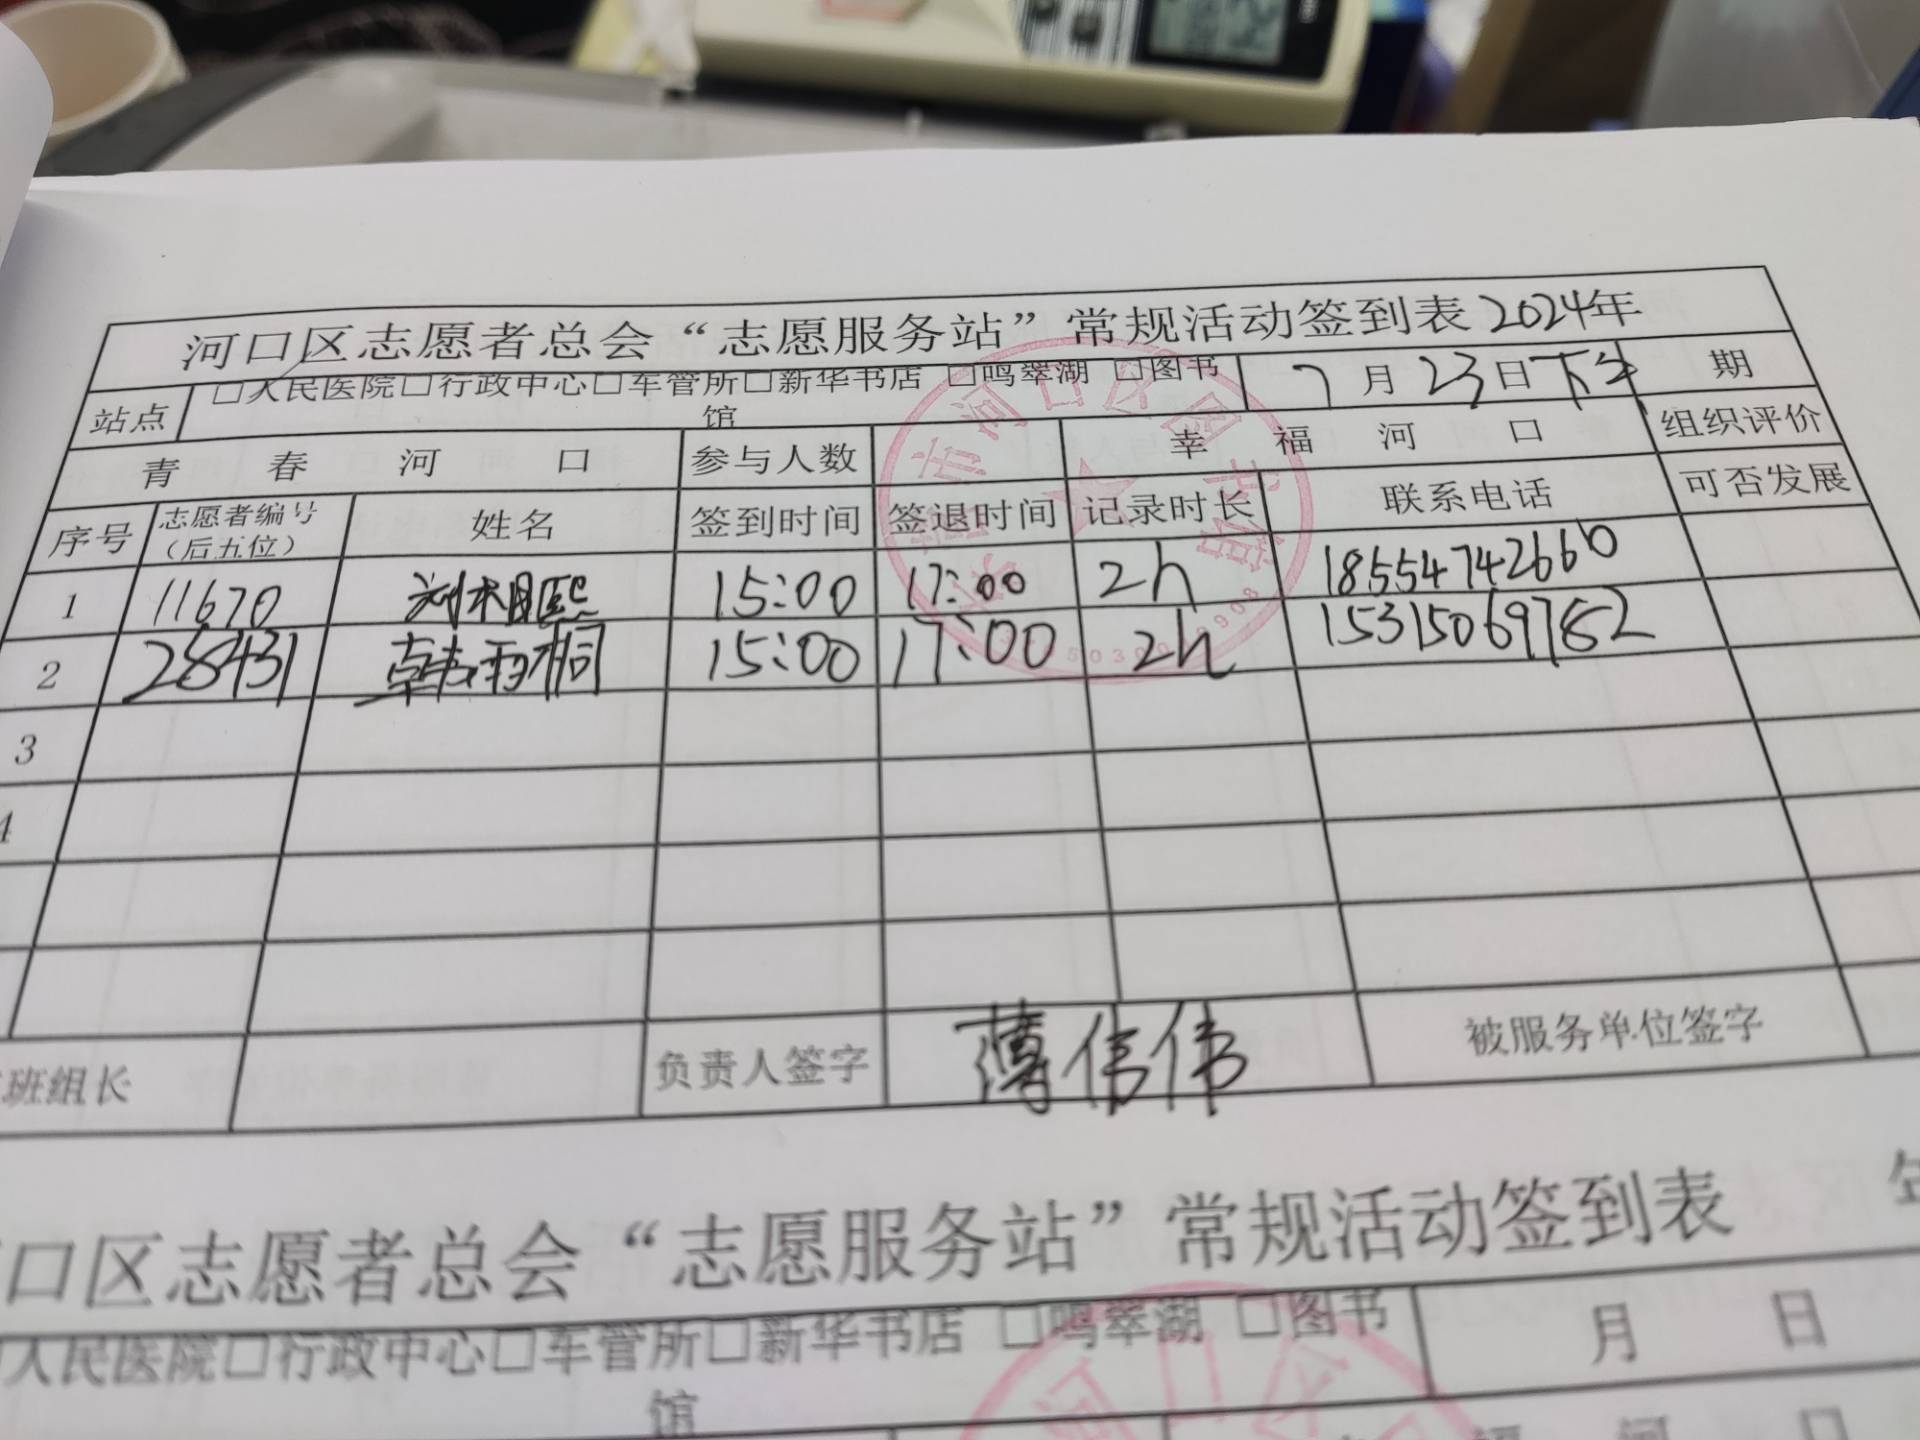 河口区志愿者总会“志愿服务站”常规活动签到表2024年
站点 □人民医院□行政中心□车管所□新华书店 □鸣翠湖 □图书馆 7月23日下午 期
青春河口 参与人数 幸福河口 组织评价
序号 志愿者编号（后五位） 姓名 签到时间 签退时间 记录时长 联系电话 可否发展
1 11670 15:00 17:00 2h 18554742660
2 28431 韩雨桐 15:00 17:00 2h 15315069782
3
4
班组长 负责人签字 薄伟伟 被服务单位签字
口区志愿者总会“志愿服务站”常规活动签到表 年
人民医院□行政中心□车管所□新华书店 □鸣翠湖 □图书馆 月 日
福河口